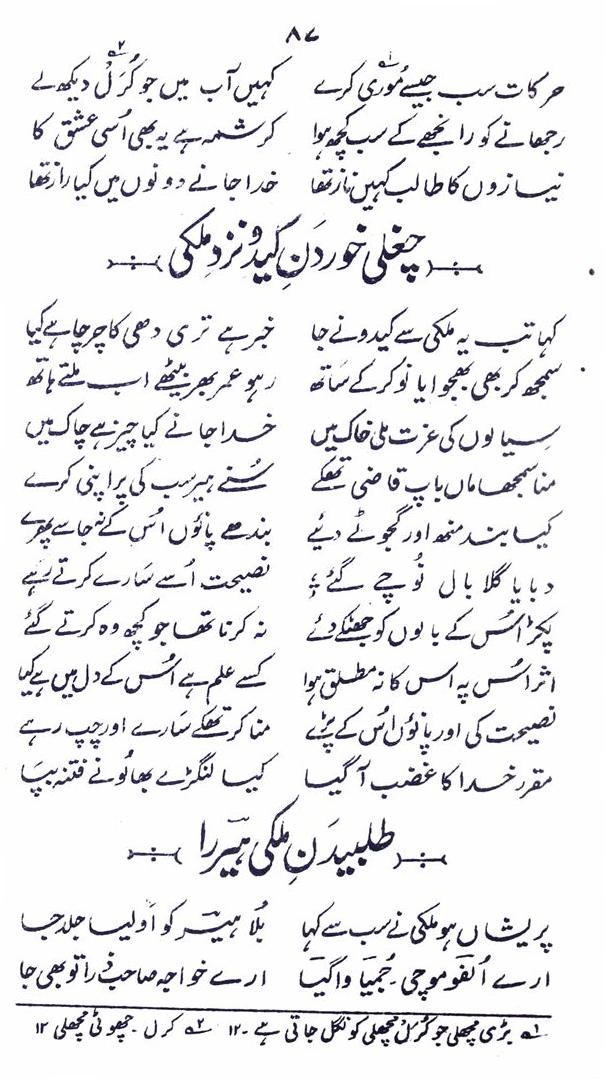 ۸۷
حرکات سب جیسے مُوری کرے کہیں آب میں جو کُرَلْ دیکھ لے
رجھانے کو رانجھے کے سب کچھ ہوا کرشمہ ہے یہ بھی اُسی عشق کا
نیازوں کا طالب کہیں ناز تھا خدا جانے دونوں میں کیا راز تھا
چغلی خوردَنِ کیدو نزدِ ملکی
کہا تب یہ ملکی سے کیدو نے جا خبر ہے تری دھی کا چرچا ہے کیا
سمجھ کر بھی بھجوایا نوکر کے سَاتھ رہو عمر بھر بیٹھے اب ملتے ہاتھ
سیالوں کی عزت ملی خاک میں خدا جانے کیا چیز ہے چاک میں
منا سمجھا ماں باپ قاضی تھکے سُنے ہیر سب کی پر اپنی کرے
کیا بند منھ اور گجوٹے دیے بندھے پانوٴں اُس کے نہ جا سے پھرے
دبایا گلا بال نُوچے گئے نصیحت اُسے سَارے کرتے رہے
پکڑ اُس کے بالوں کو جھٹکے دئے نہ کرنا تھا جو کچھ وہ کرتے گئے
اثر اُس پہ اس کا نہ مطلق ہوا کسے علم ہے اُس کے دل میں ہے کیا
نصیحت کی اور پانوٴں اُس کے پڑے منا کر تھکے سَارے اور چپ رہے
مقرر خدا کا غضب آ گیا کیسا لنگڑے بھانُو نے فتنہ بپَا
طلبیدَنِ ملکی ہیر را
پریشاں ہو ملکی نے سب سے کہا بُلا ہیر کو اَولیا جلد جا
ارے اُلفو موچی۔ جُمیَا واگیَا ارے خواجہ صاحب ذرا تو بھی جا
۱؎ بڑی مچھلی جو کُرَلْ مچھلی کو نگل جاتی ہے ۔ ۱۲ ۲؎ کرل ۔ چھوٹی مچھلی ۱۲